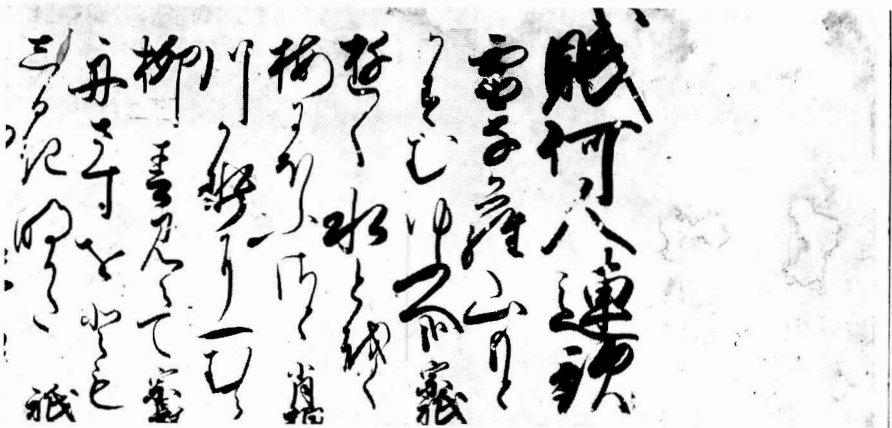 賦何人連歌
雪なから山もと
かすむ夕哉 宗祇
遊く水とをく
梅にほふさと 肖柏
川風に一むら
柳春見えて 宗長
舟さすをとも
しるき明かた 祇